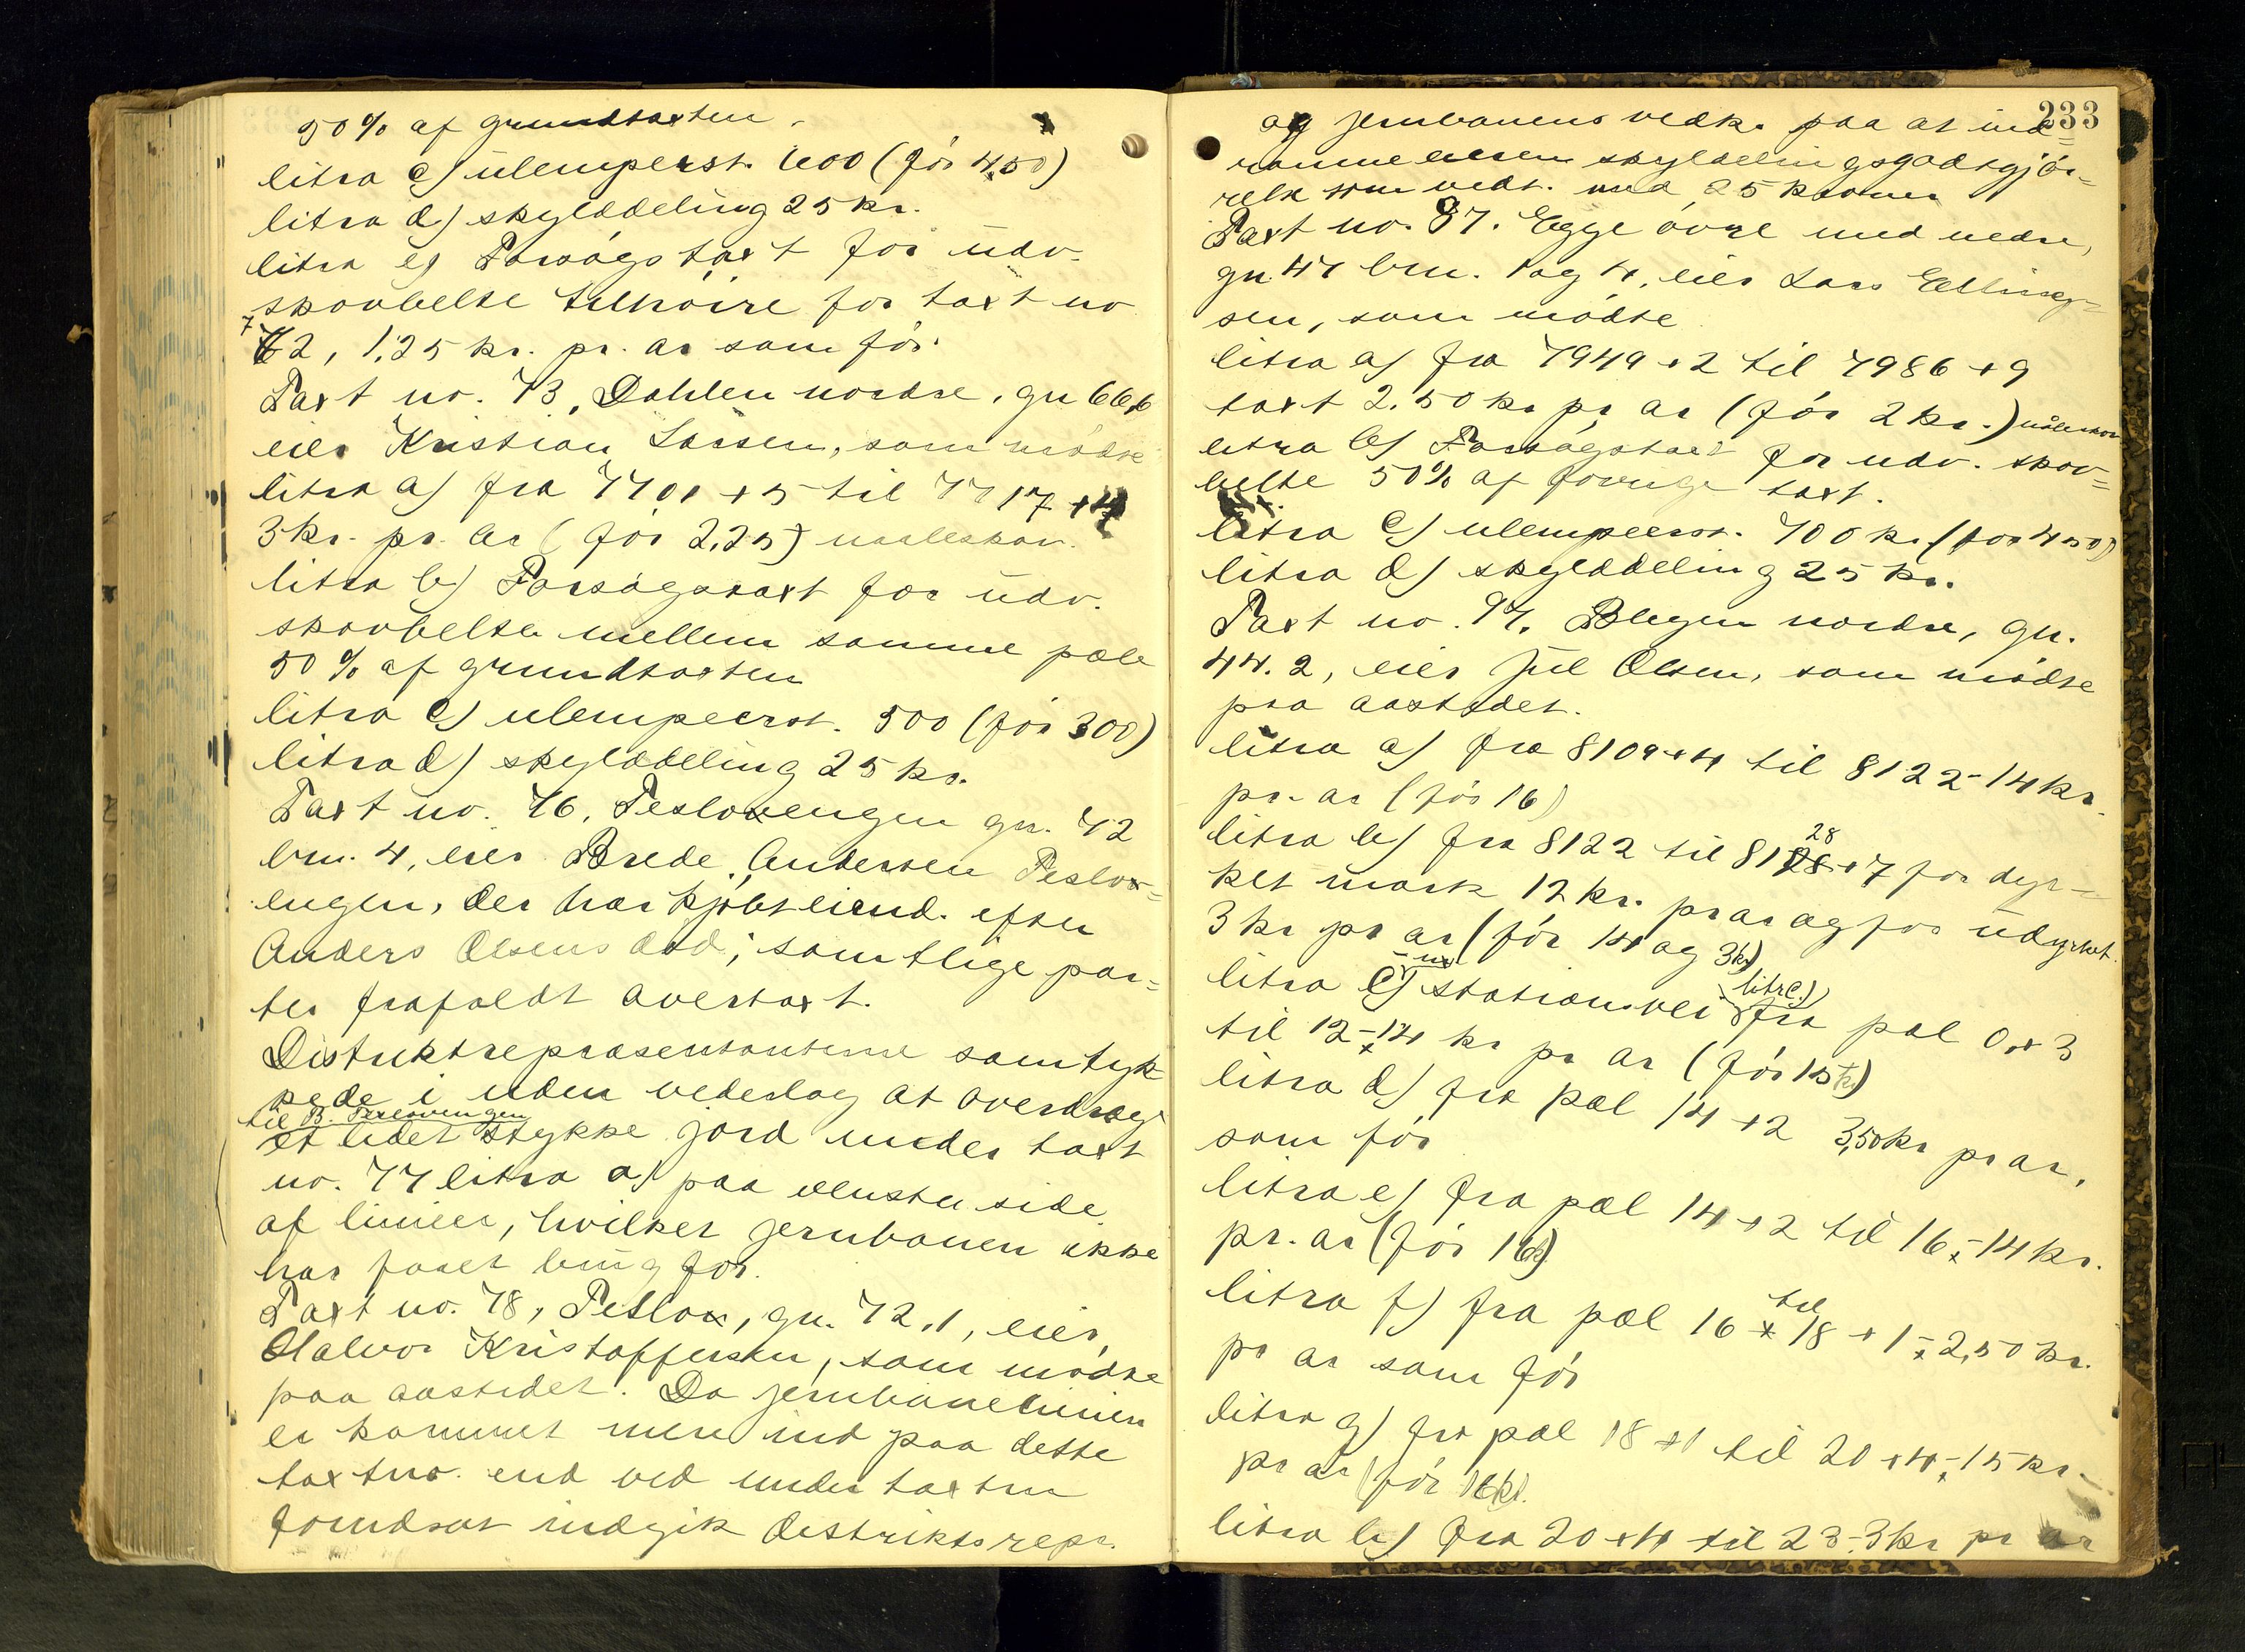 50% af grundtaxten.
litra c) ulemperst. 600 (før 450)
litra d) skylddeling 25 kr.
litra e) Forsøgstaxt for udv.
skovbelte tilhøire for taxt no
72, 1,25 kr. pr. ar som før.
Taxt no. 73, Dahlen nordre, gn 66,6
eier Kristian Larsen, som mødte
litra a) fra 7701 + 5 til 7717 + 4
3 kr. pr. ar (før 2,25) naaleskov.
litra b) Forsøgstaxt for udv.
skovbelte mellem samme pæle
50% af grundtaxten
litra c) ulempeerst. 500 (før 300)
litra d) skylddeling 25 kr.
Taxt no. 76, Tesloengen gn. 72
brn. 4, eier Brede Andersen Teslo=
engen, der har kjøbt eiend. efter
Anders Olsens død; samtlige par=
ter frafaldt overtaxt.
Distriktsrepræsentanterne samtyk=
kede i uden vederlag at overdrage
til B. Tesloengen
et lidet stykke jord under taxt
no. 77 litra a) paa venstre side
af linien, hvilket jernbanen ikke
har faaet brug for.
Taxt no. 78, Teslo, gn. 72,1, eier
Halvor Kristoffersen, som mødte
paa aastedet. Da jernbanelinien
er kommet mere ind paa dette
taxtno. end ved undertaxten
forudsat indgik distriktsrepr.
233
og jernbanens vedk. paa at ind=
rømme eieren skylddelingsgodtgjø=
relse som vedt. med 25 kroner
Taxt no. 87. Egge øvre med nedre,
gn. 47 brn. 1 og 4, eier Lars Elling=
sen, som mødte
litra a) fra 7949 + 2 til 7986 + 9
taxt 2.50 kr pr ar (før 2 kr.) nåleskov
litra b) Forsøgstaxt for udv. skov=
belte 50% af forrige taxt.
litra c) ulempeerst. 700 kr. (før 450)
litra d) skylddeling 25 kr.
Taxt no. 97. Blegen nordre, gn.
44.2, eier Jul Olsen, som mødte
paa aastedet.
litra a) fra 8109 + 4 til 8122 - 14 kr.
pr. ar (før 16)
litra b) fra 8122 til 8128 + 7 for dyr=
28
ket mark 12 kr. pr ar og for udyrket
3 kr pr ar (før 14 og 3 kr)
litra c) stationsvei fra pæl 0 + 3
litr c)
til 12 - 14 kr pr ar (før 15 kr)
litra d) fra pæl 14 + 2 3,50 kr pr ar,
som før
litra e) fra pæl 14 + 2 til 16 - 14 kr.
pr. ar (før 16)
litra f) fra pæl 16 til 18 + 1 - 2,50 kr.
pr ar som før
litra g) fra pæl 18 + 1 til 20 + 4 - 15 kr.
pr ar (før 16 kr).
litra h) fra 20 + 4 til 23 - 3 kr pr ar